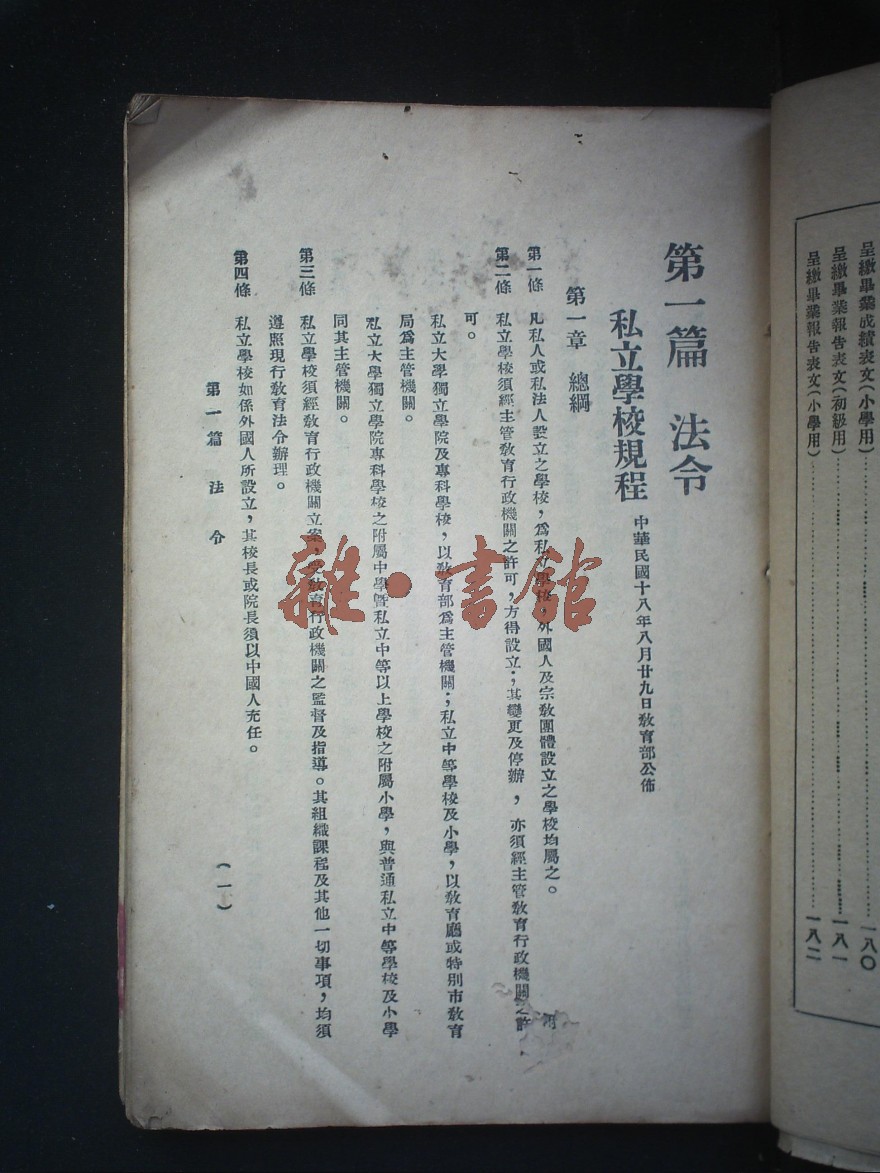 呈繳畢業成績表文(小學用)……一八〇
呈繳畢業報告表文(初級用)……一八一
呈繳畢業報告表文(小學用)……一八二
第一篇 法令
私立學校規程 中華民國十八年八月廿九日教育部公佈
第一章 總綱
第一條 凡私人或私法人設立之學校,爲私立學校,外國人及宗教團體設立之學校均屬之。
第二條 私立學校須經主管教育行政機關之許可,方得設立;其變更及停辦,亦須經主管教育行政機關之許
可。
私立大學獨立學院及專科學校,以教育部爲主管機關;私立中等學校及小學,以教育廳或特別市教育
局爲主管機關。
私立大學獨立學院專科學校之附屬中學暨私立中等以上學校之附屬小學,與普通私立中等學校及小學
同其主管機關。
第三條 私立學校須經教育行政機關立案,受教育行政機關之監督及指導。其組織課程及其他一切事項,均須
遵照現行教育法令辦理。
第四條 私立學校如係外國人所設立,其校長或院長須以中國人充任。
第一篇 法令
(一)
雜·書館